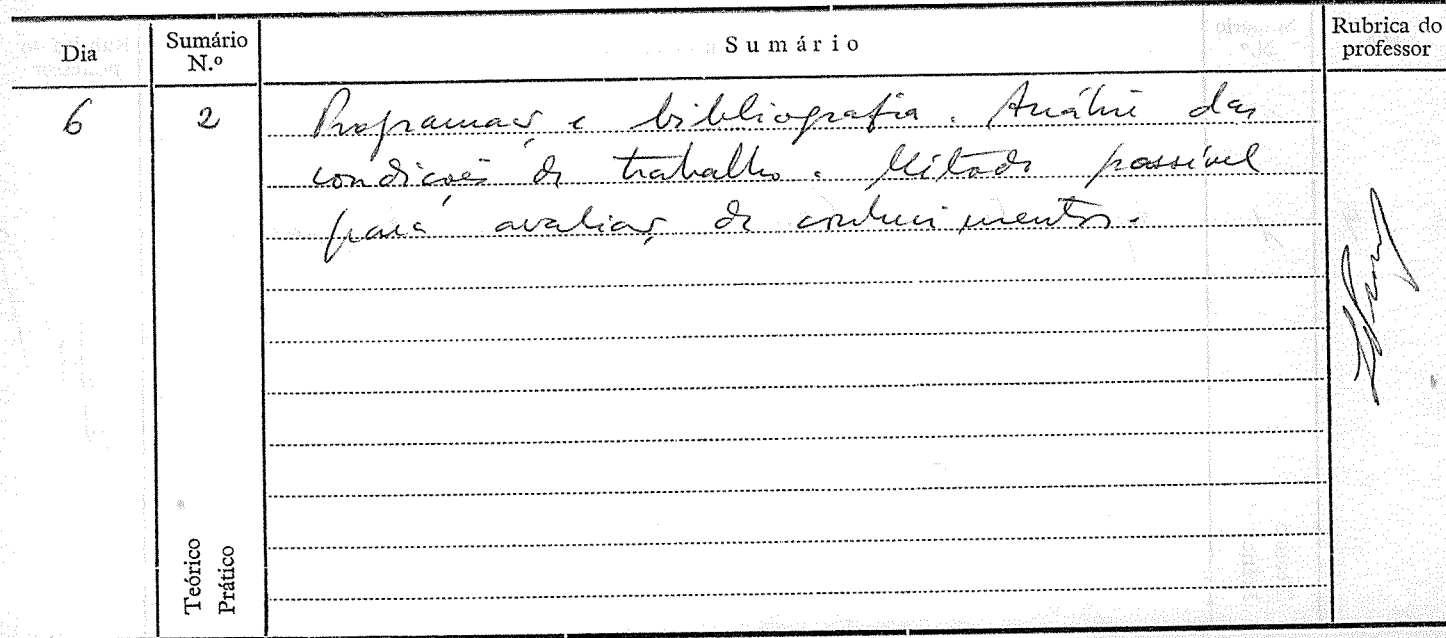 Dia
Sumário N.º
Sumário
Rubrica do professor
6
2
Programação e bibliografia. Análise das
condições de trabalho. Método possível
para avaliação de conhecimentos.
Teórico
Prático